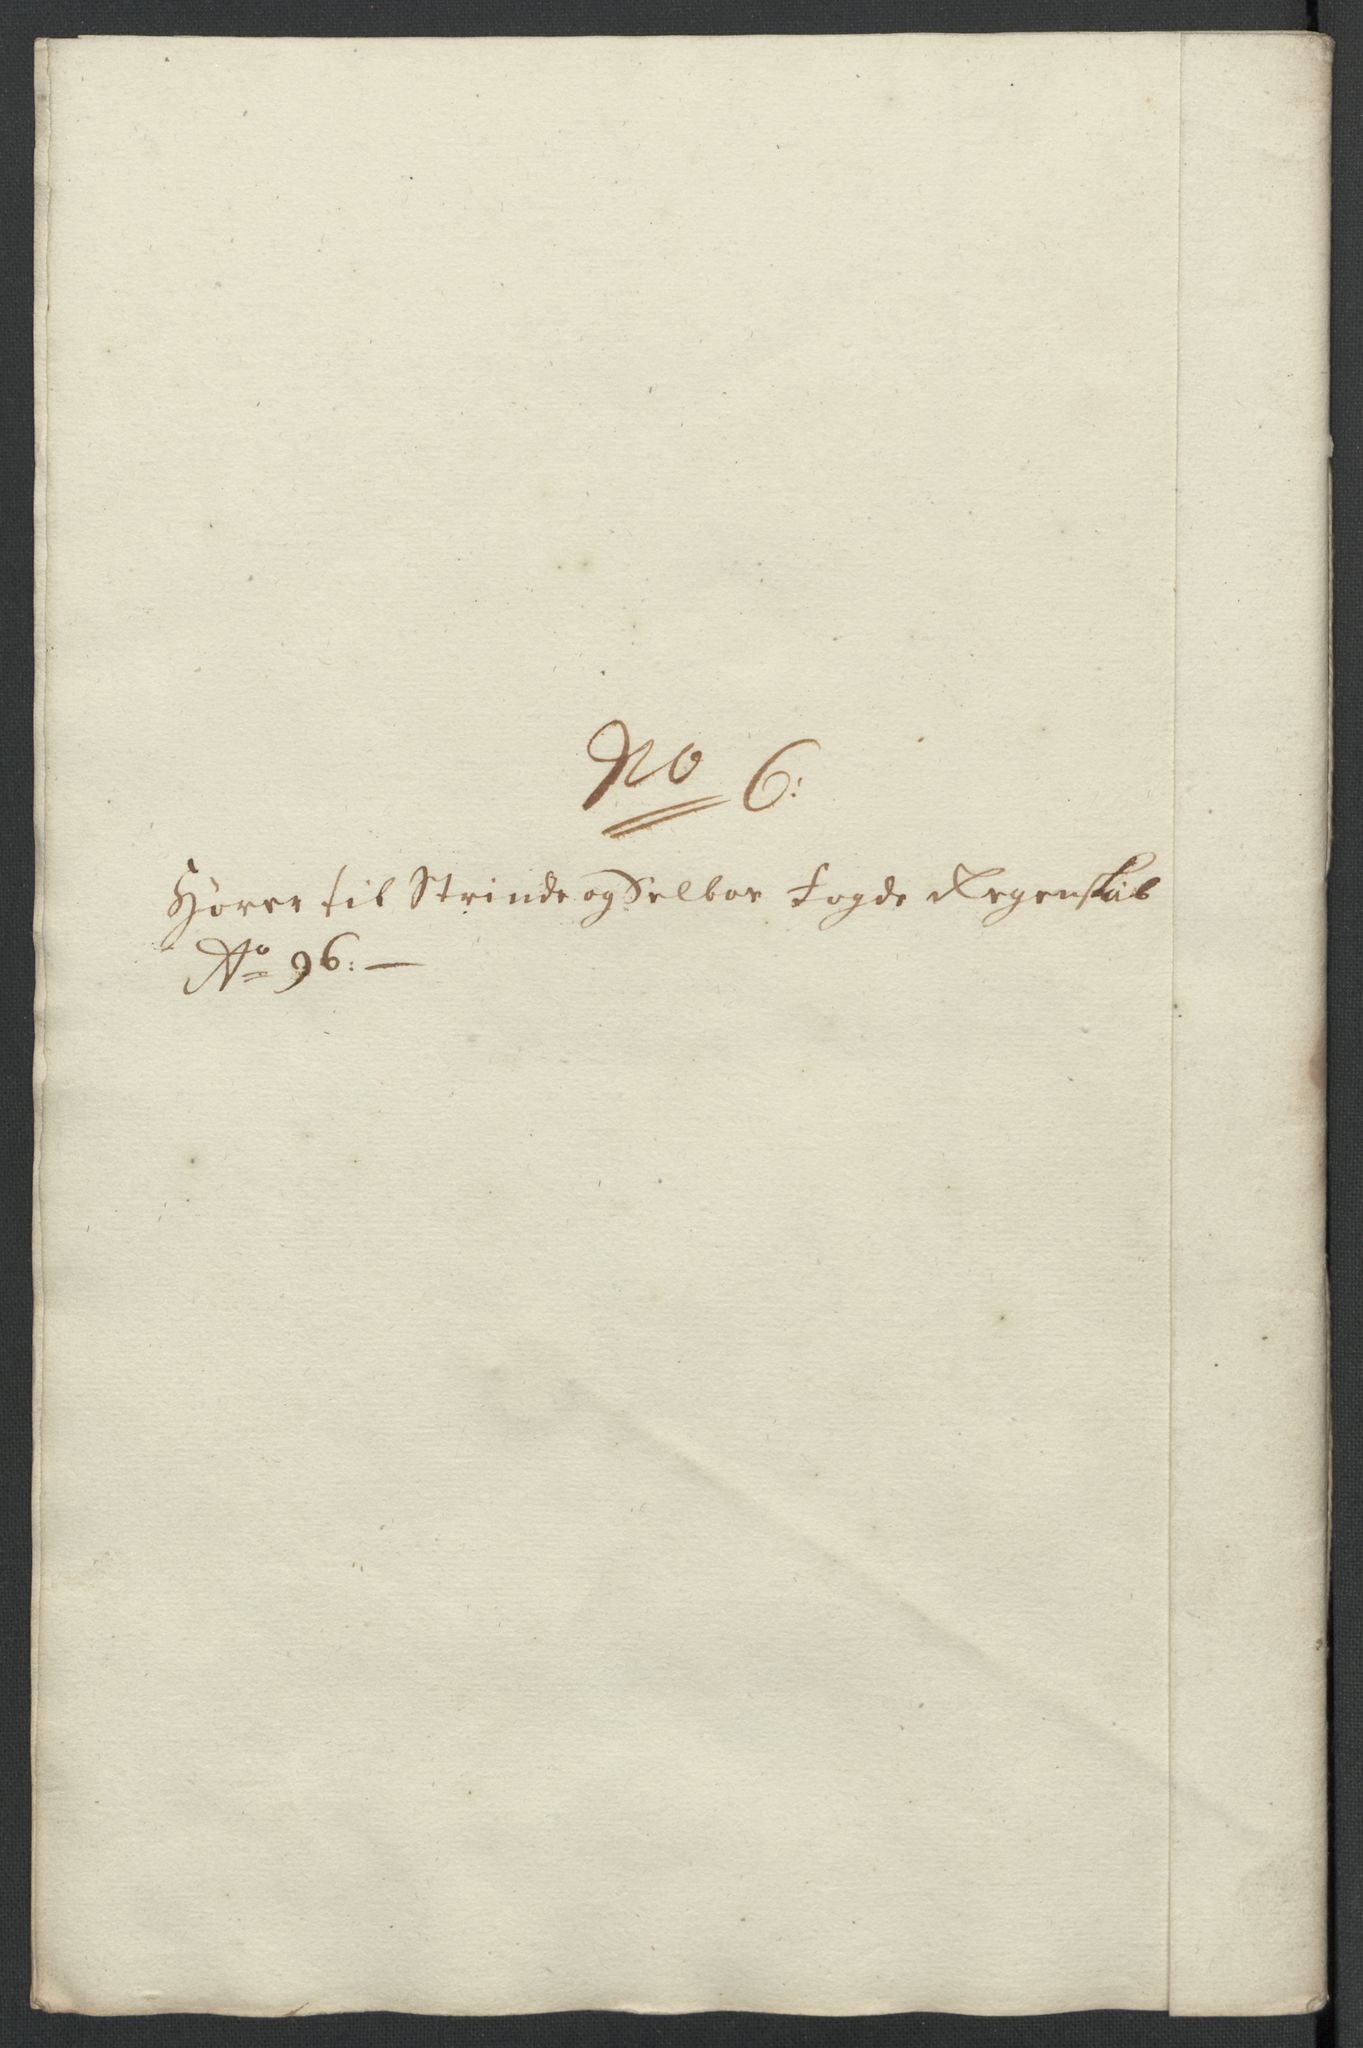 No 6:
Hörer til Strinde og Selboe Fogde Regenskab
Ao 96: —